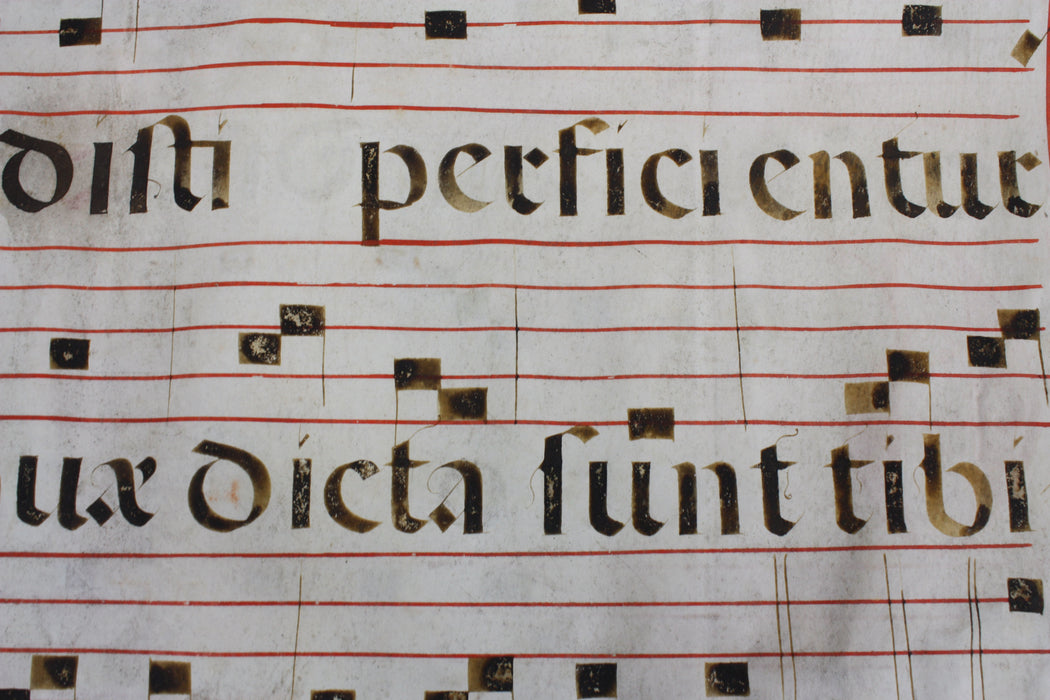 disti perficientur
uæ dicta sunt tibi